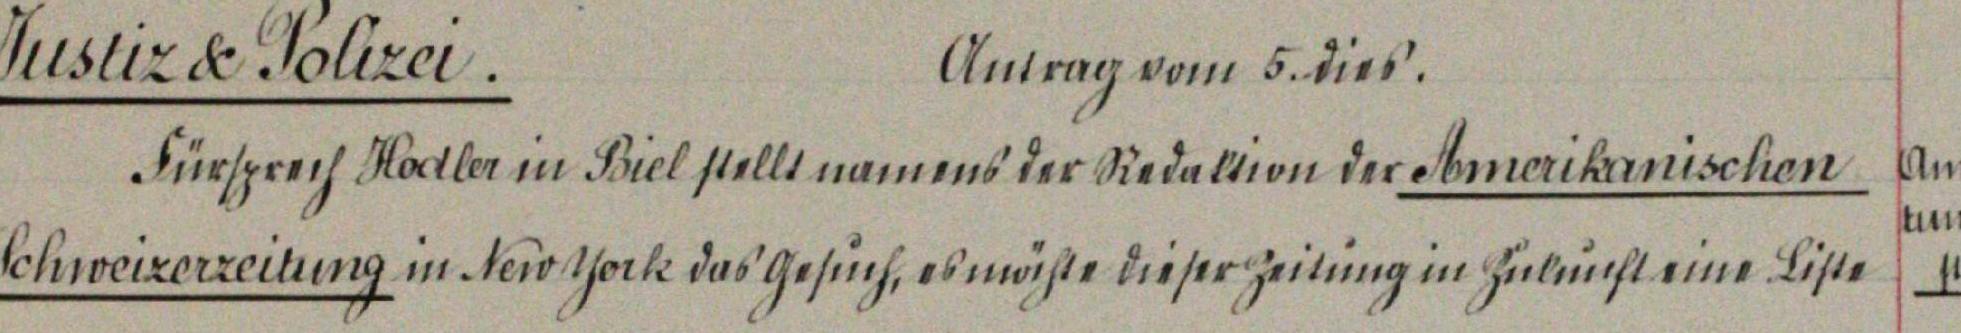 Justiz & Polizei. Antrag vom 5. dies.
Fürsprech Hodler in Biel stellt namens der Redaktion der Amerikanischen
Schweizerzeitung in New York das Gesuch, es möchte dieser Zeitung in Zukunft eine Liste